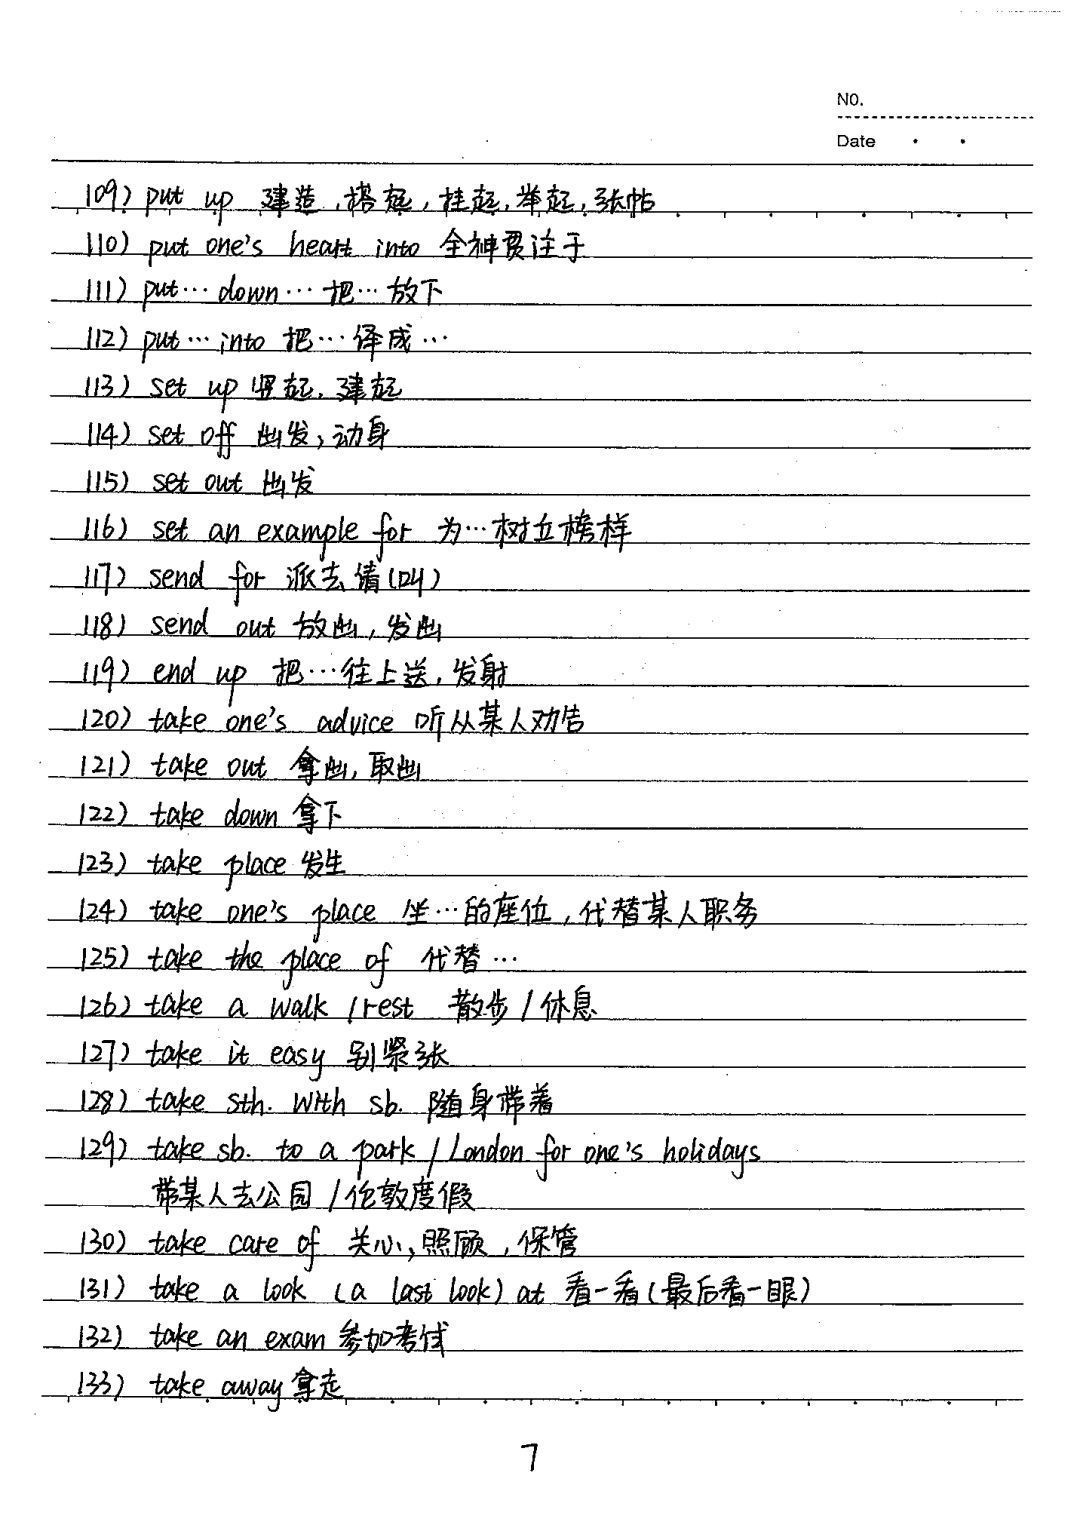 NO.
Date
109) put up 建造,搭起,挂起,举起,张帖
110) put one's heart into 全神贯注于
111) put… down… 把…放下
112) put… into 把…译成…
113) set up 竖起,建起
114) set off 出发,动身
115) set out 出发
116) set an example for 为…树立榜样
117) send for 派去请(叫)
118) send out 放出,发出
119) end up 把…往上送,发射
120) take one's advice 听从某人劝告
121) take out 拿出,取出
122) take down 拿下
123) take place 发生
124) take one's place 坐…的座位,代替某人职务
125) take the place of 代替…
126) take a walk / rest 散步 / 休息
127) take it easy 别紧张
128) take sth. with sb. 随身带着
129) take sb. to a park / London for one's holidays
带某人去公园 / 伦敦度假
130) take care of 关心,照顾,保管
131) take a look (a last look) at 看一看(最后看一眼)
132) take an exam 参加考试
133) take away 拿走
7